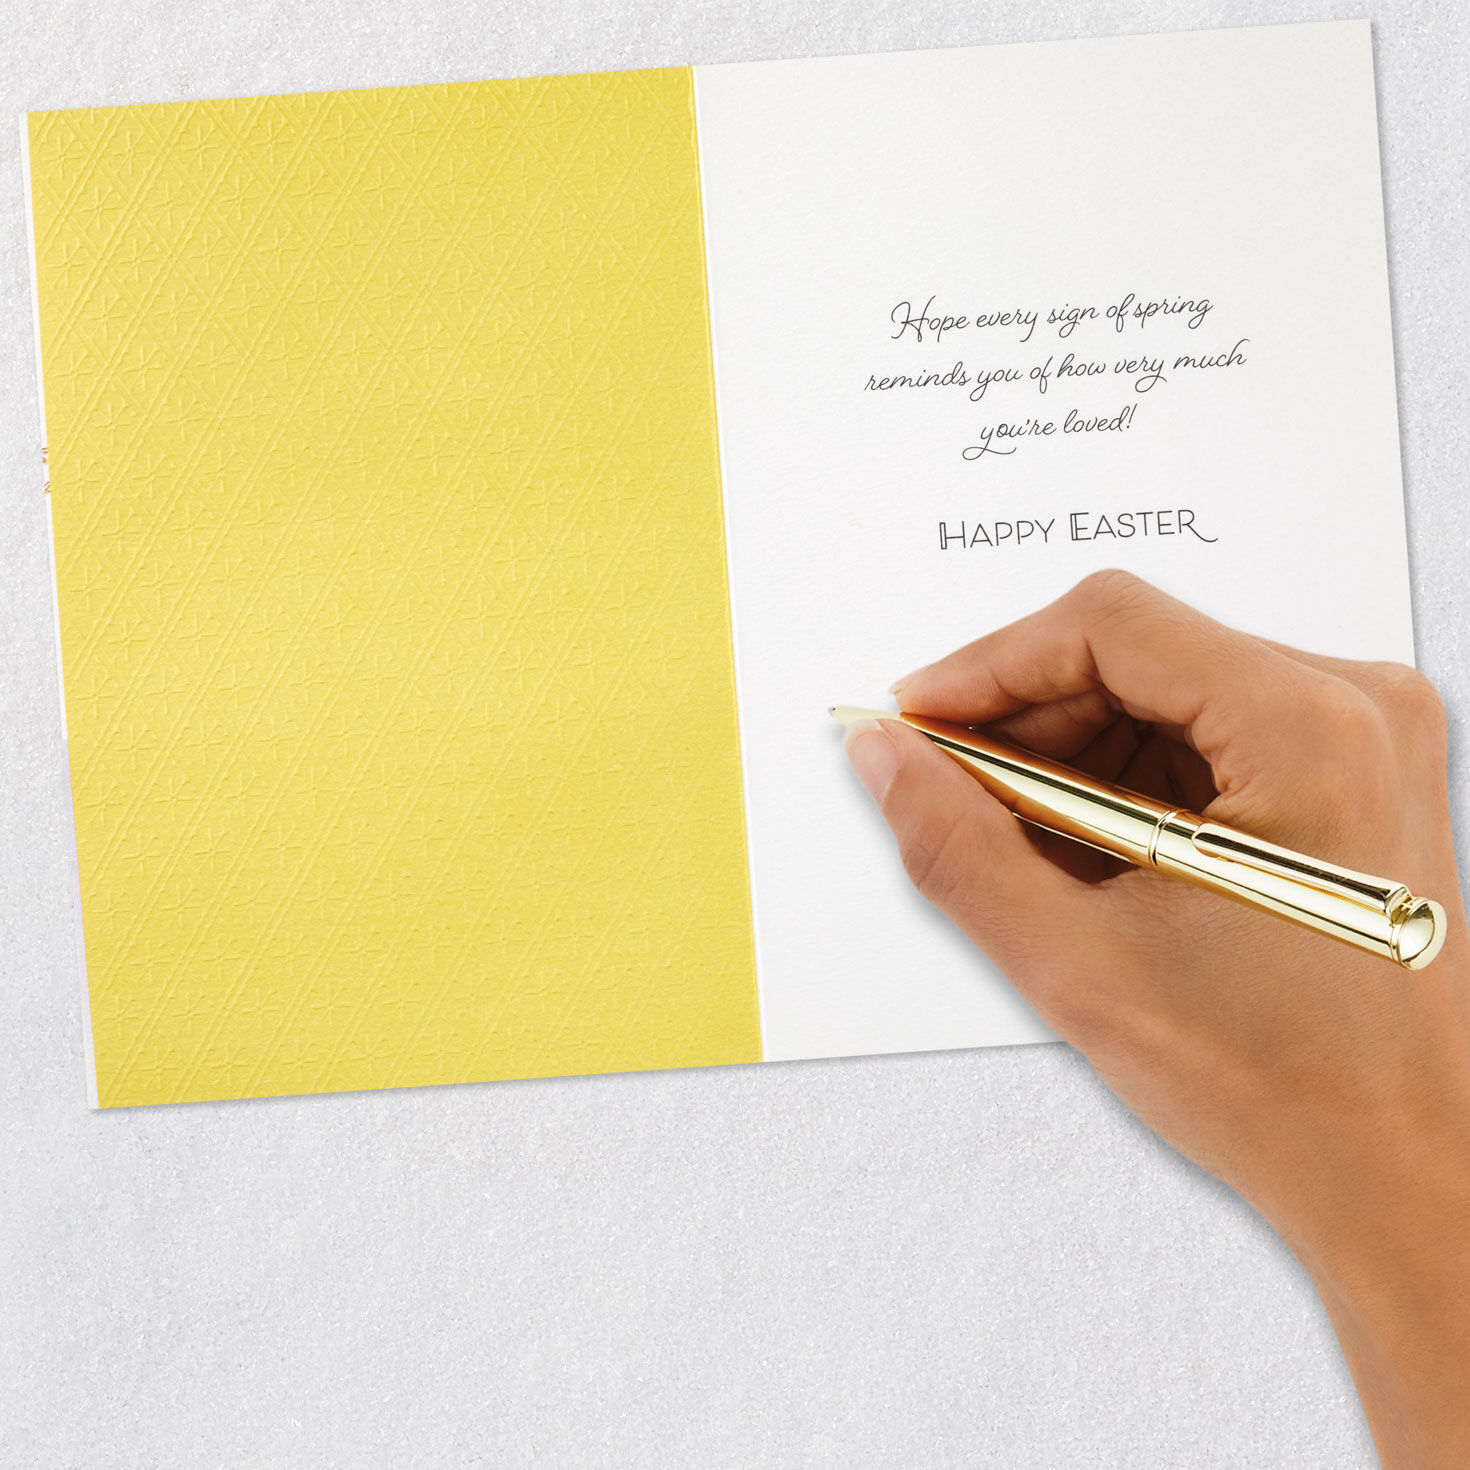 Hope every sign of spring
reminds you of how very much
you're loved!
HAPPY EASTER